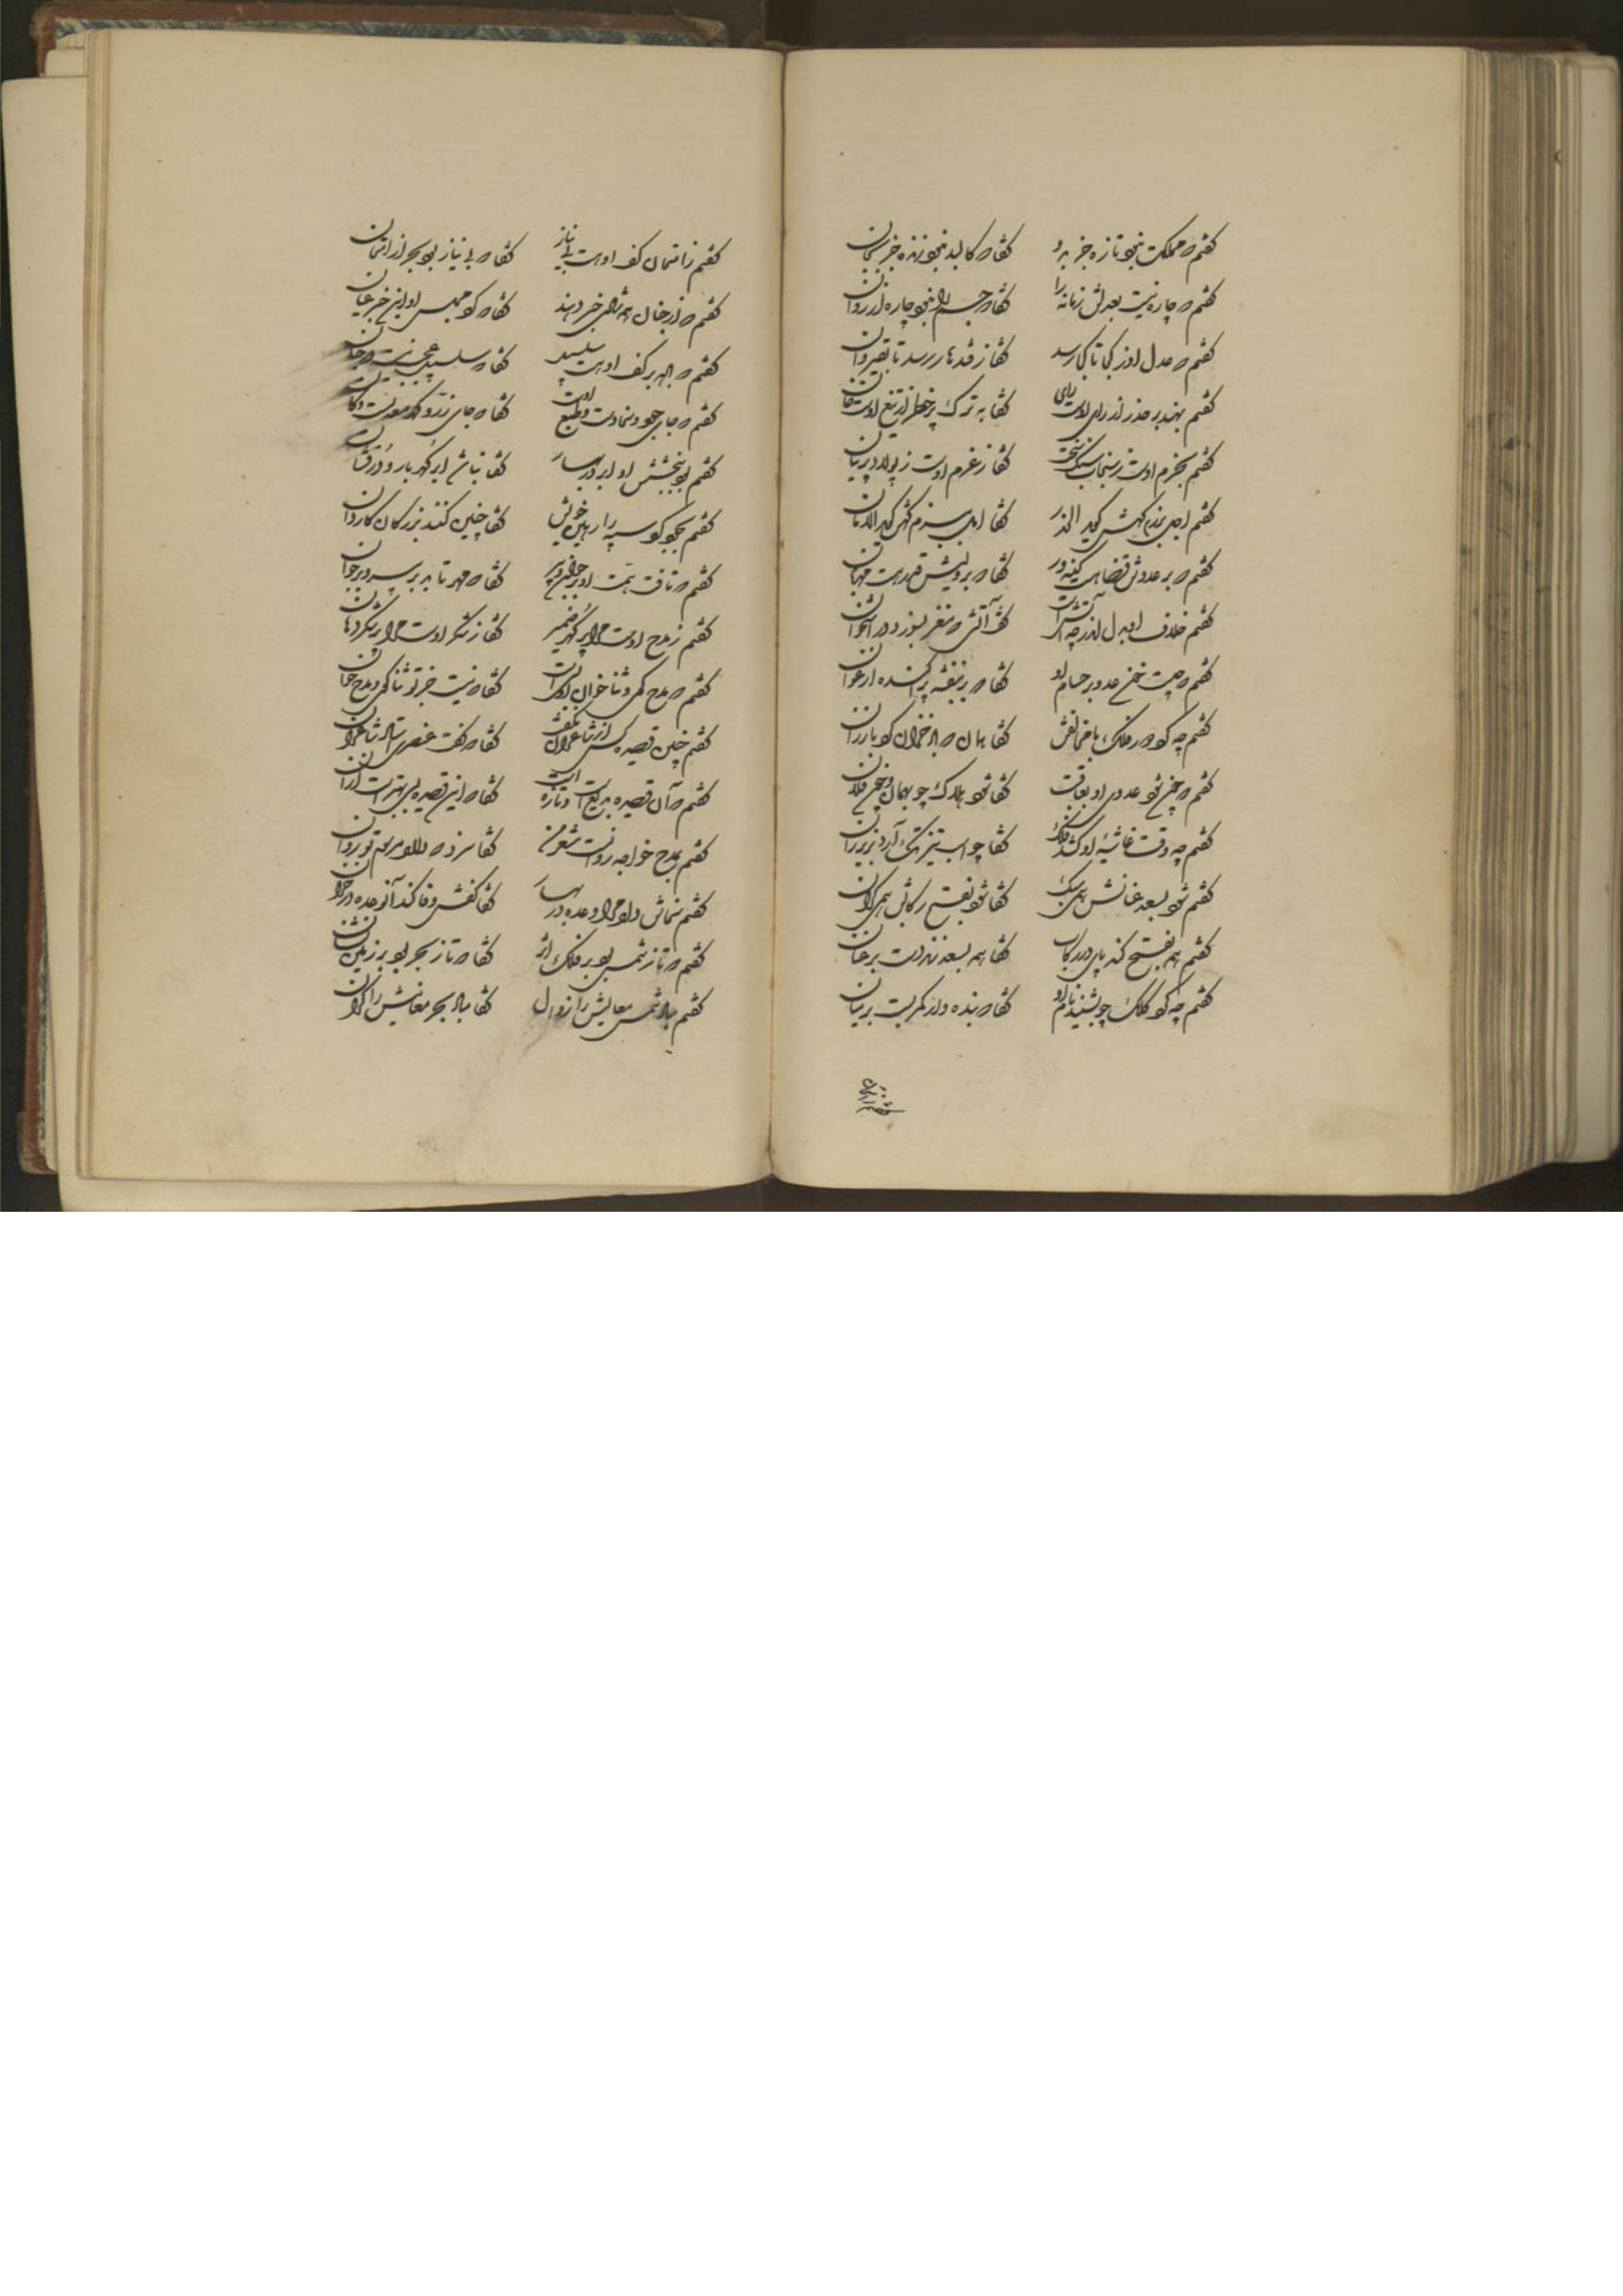 گفتم که مملکت نبود تازه جز بدو گفتا که کالبد نبود زنده جز بجان
گفتم که چاره نیست بعدلش زمانه را گفتا که جسم را نبود چاره از روان
گفتم که عدل او ز کجا تا کجا رسد گفتا ز قندهار رسد تا بقیروان
گفتم بهند بر حذر از رای اوست رای گفتا به ترک پر خطر از تیغ اوست خان
گفتم بحزم اوست ز سنجاب سنگ سخت گفتا ز عزم اوست ز پولاد پرنیان
گفتم اجل برزم کهش گوید الحذر گفتا امل ببزم کهش گوید الامان
گفتم که بر عدوش قضا هست کینه ور گفتا که بر ولیش قدر هست مهربان
گفتم خلاف او بدل اندر چه آتش است گفت آتشی که مغز بسوزد در استخوان
گفتم که چیست خون عدو بر حسام او گفتا که بر بنفشه پراکنده ارغوان
گفتم چه گوید فلک با مخالفش گفتا همان که باد خزان کرد با رزان
گفتم که چون شود عدوی او بعاقبت گفتا شود هلاک چو بهمان و چون فلان
گفتم چه وقت غاشیهٔ او کشد فلک گفتا چو اسب تیزتک آرد بزیر ران
گفتم شود بسعد عنانش همی سبک گفتا شود بفتح رکابش همی گران
گفتم همه بفتح کند پای در رکاب گفتا همه بسعد زند دست بر عنان
گفتم چه کرد فلک چو بشنید نام او گفتا که بنده وار کمر بست بر میان
گفتم ز امتحان کف او هست بی نیاز گفتا که بی نیاز بود بحر از امتحان
گفتم که از جنان همه شب خبر دهند گفتا که کو مجلس او اینک خبر عیان
گفتم که ابر کف او هست سلسبیل گفتا که سلسبیل عجب نیست در جنان
گفتم که جای جود و سخا دست و طبع اوست گفتا که جای زر و گهر معدنست و کان
گفتم بود ببخشش او ابر در بهار گفتا نباشد ابر گهربار و درفشان
گفتم بجود کو سپه آراید خویش گفتا چنین کنند بزرگان کاردان
گفتم که تافت همت او بر جوان و پیر گفتا که مهر تابد بر پیر و بر جوان
گفتم ز مدح اوست مرا پر گهر ضمیر گفتا ز شکر اوست مرا پر شکر دهان
گفتم که مدح گوی و ثنا خوان او که است گفتا که نیست جز تو ثنا گوی و مدح خوان
گفتم چنین قصیده کس از شاعران نگفت گفتا که گفت عنصری استاد شاعران
گفتم که آن قصیده بدیع است و تازه است گفتا که این قصیده بسی بهتر است از آن
گفتم بمدح خواجه روانست شعر من گفتا سزد که دل مرسوم تو روان
گفتم نمایش داد مرا وعده در بهار گفتا کفش وفا کند آن وعده در خزان
گفتم که تا ز شمس بود بر فلک اثر گفتا که تا ز بحر بود بر زمین نشان
گفتم مباد شمس معالیش را زوال گفتا مباد بحر معانیش را کران